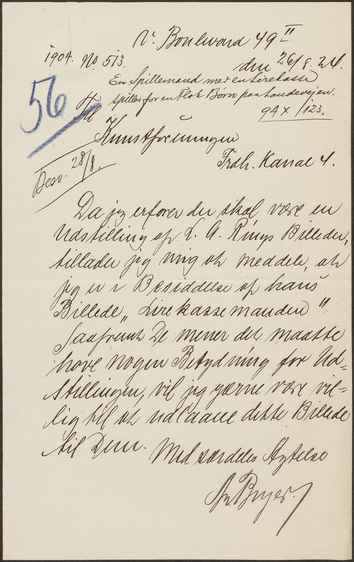 Vr Boulevard 49 II
den 26/8. 24.
1904. No. 513.
En Spillemand med en Lirekasse
spiller for en Flok Børn paa Landevejen.
94 x 123.
56
Til
Kunstforeningen
Frdh. Kanal 4.
Besv. 28/8.
Da jeg erfarer der skal være en
Udstilling af L. A. Rings Billeder,
tillader jeg mig at meddele, at
jeg er i Besiddelse af hans
Billede „Lirekassemanden”.
Saafremt De mener det maatte
have nogen Betydning for Ud-
stillingen, vil jeg gærne være vil-
lig til at udlaane dette Billede
til Dem.
Med særdeles Agtelse